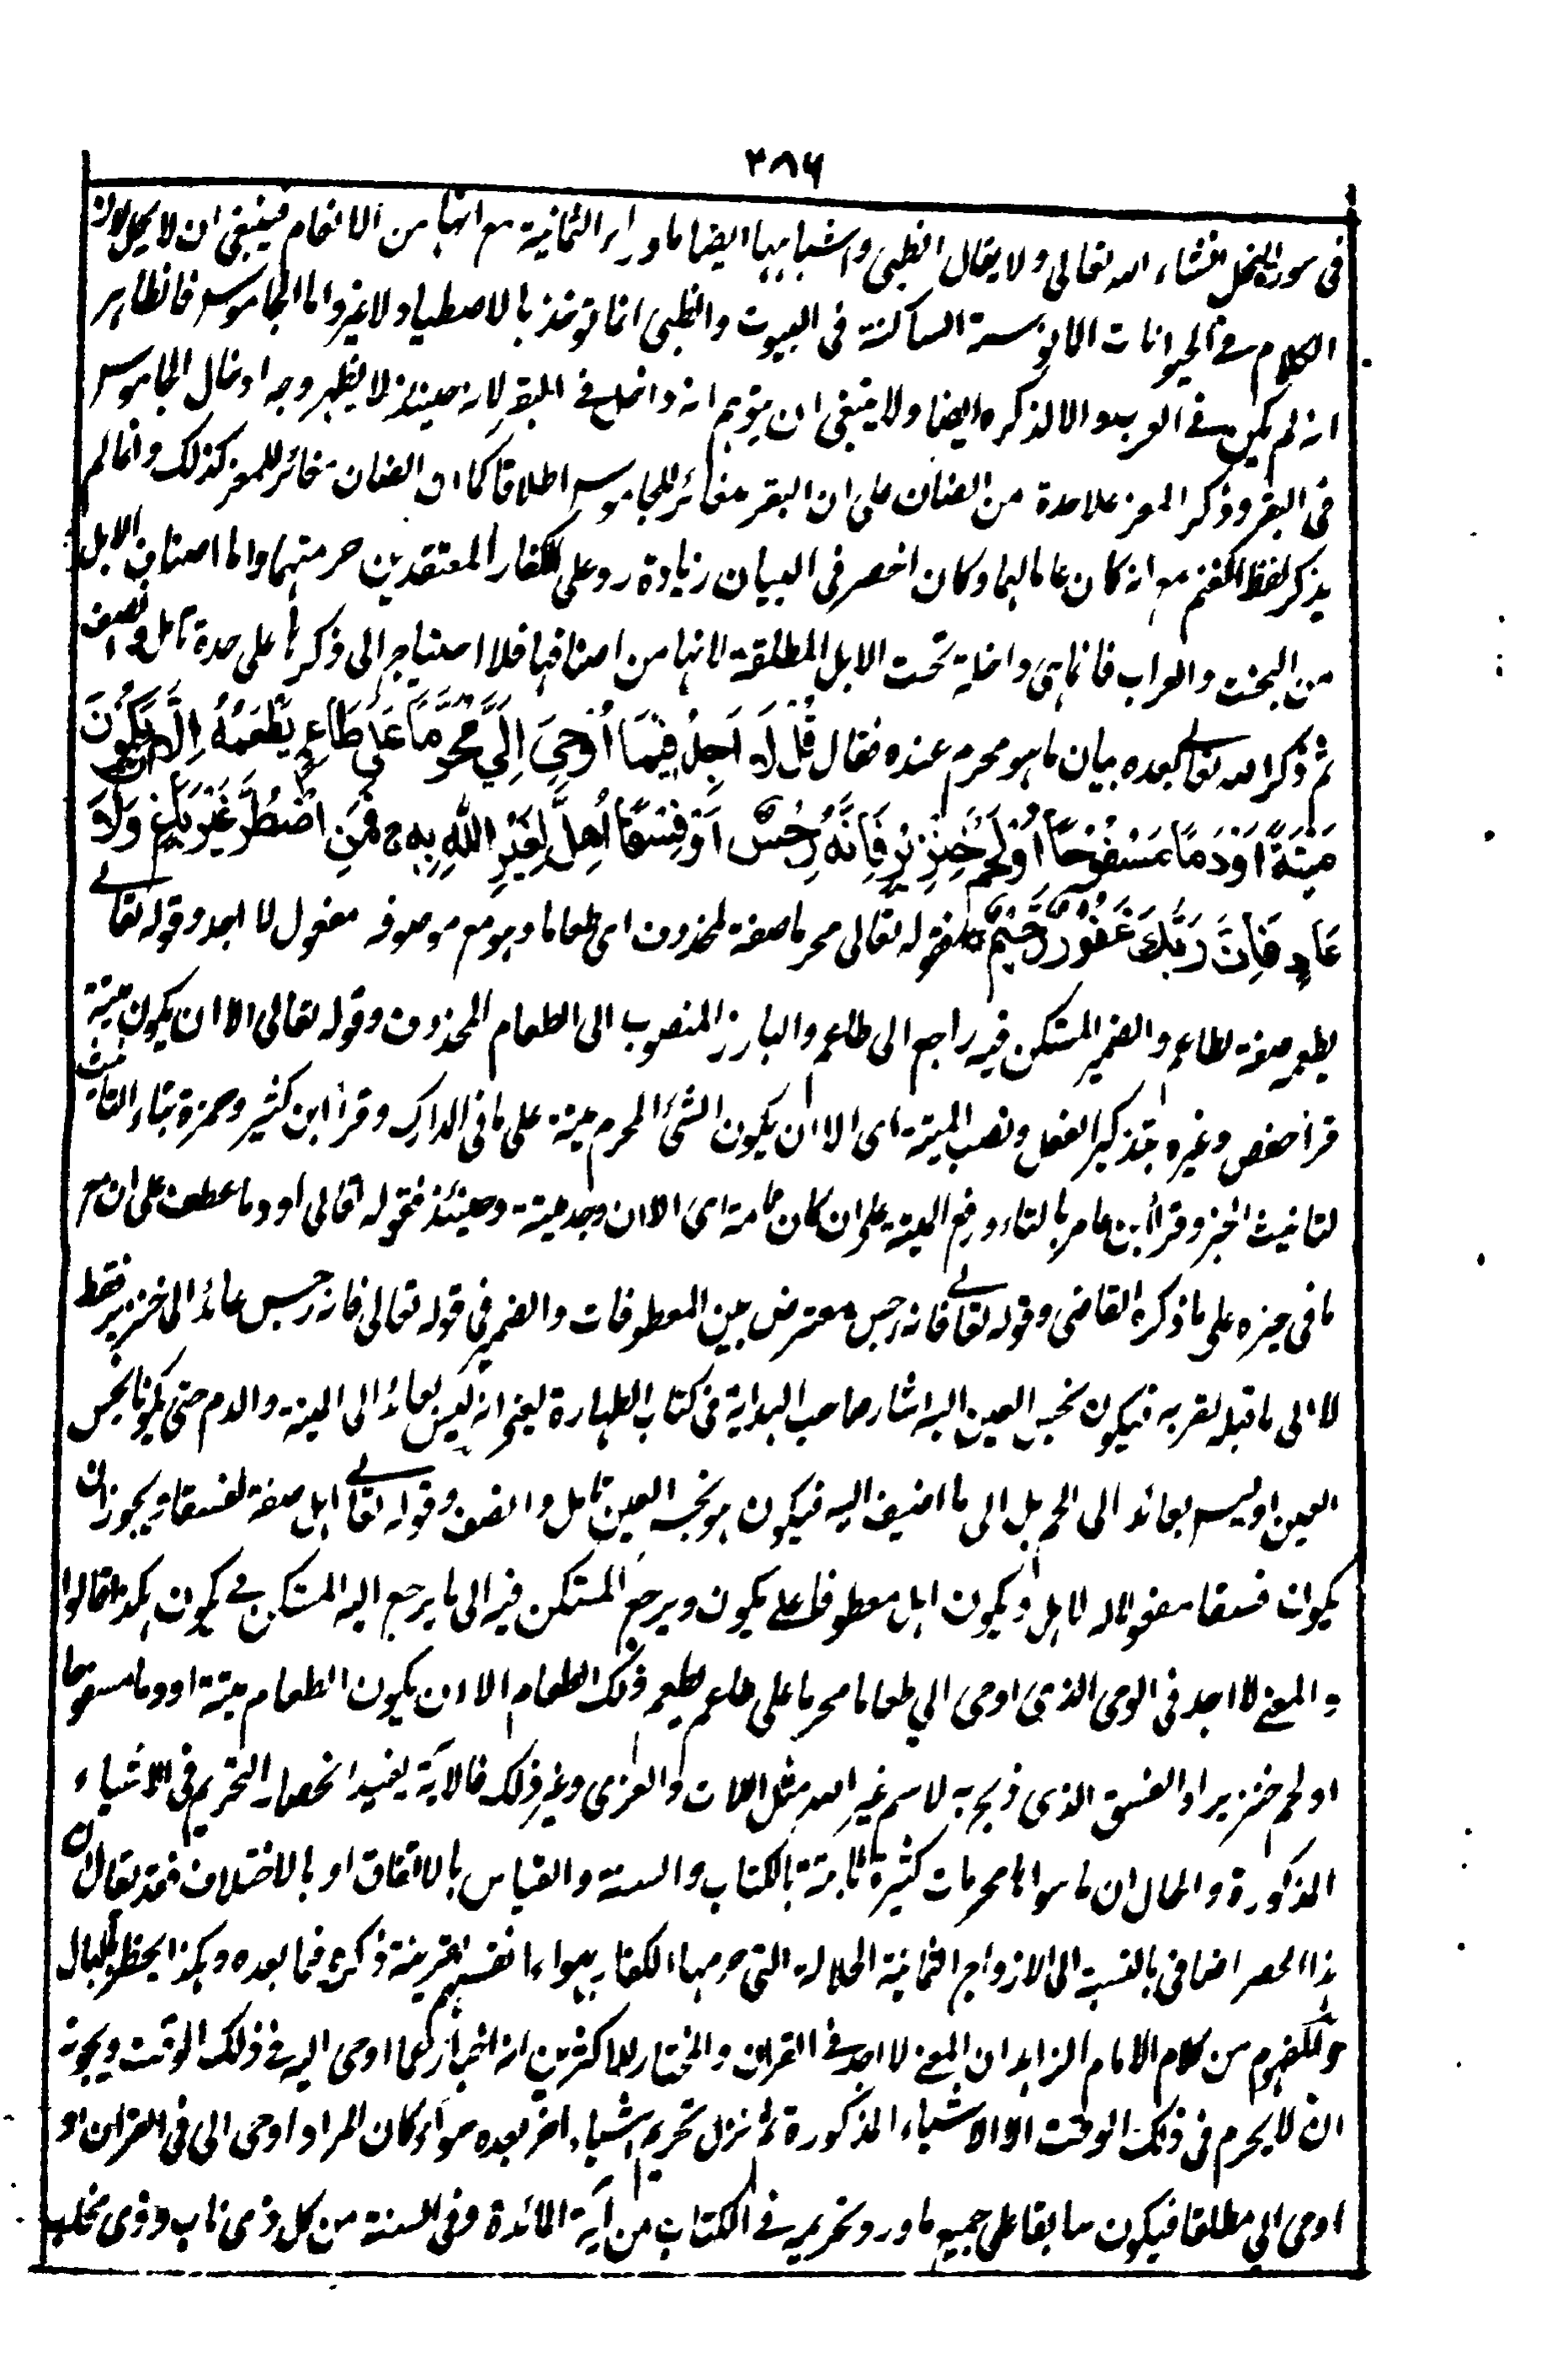 ٣٨٦
فى سورة النحل انشاء الله تعالى ولا يقال الظبى واشباهها ايضا ما وراء الثمانية مع انها من الانعام فينبغى ان لا يحل لان
الكلام فے الحيوانات الانوسة الساكنة فى البيوت والظبى انما توخذ بالاصطياد لا غير واما الجاموس فالظاهر
انه لم يكن فے العرب والا لذكره ايضا ولا ينبغى ان يتوهم انه داخل فے البقر لانه حينئذ لا يظهر وجه ادخال الجاموس
فى البقر وذكر المعز علاحدة من الضان على ان البقر مغائر للجاموس اطلاقا كما ان الضان مغائر للمعز كذلك وانما لم
يذكر لفظ الغنم مع انه كان عاما لهما وكان اخصر فى البيان زيادة رد على الكفار المعتقدين حرمتهما واما اصناف الابل
من البخت والعراب فانما هى داخلة تحت الابل المطلقة لانها من اصنافها فلا احتياج الى ذكرها على حدة تامل وانصف
ثم ذكر الله تعالے بعده بيان ما هو محرم عنده فقال قُلْ لَّا اَجِدُ فِيْمَا اُوْحِيَ اِلَيَّ مُحَرَّمًا عَلٰى طَاعِمٍ يَّطْعَمُهٗ اِلَّا اَنْ يَّكُوْنَ
مَيْتَةً اَوْ دَمًا مَّسْفُوْحًا اَوْ لَحْمَ خِنْزِيْرٍ فَاِنَّهٗ رِجْسٌ اَوْ فِسْقًا اُهِلَّ لِغَيْرِ اللّٰهِ بِهٖ ج فَمَنِ اضْطُرَّ غَيْرَ بَاغٍ وَّلَا
عَادٍ فَاِنَّ رَبَّكَ غَفُوْرٌ رَّحِيْمٌ فقوله تعالى محرما صفة لمحذوف اى طعاما وهو مع موصوفه مفعول لا اجد وقوله تعالے
يطعمه صفة لطاعم والضمير المستكن فيه راجع الى طاعم والبارز المنصوب الى الطعام المحذوف وقوله تعالى الا ان يكون ميتة
قرأ حفص وغيره بتذكير الفعل ونصب الميتة اى الا ان يكون الشئ المحرم ميتة على ما فى المدارك وقرأ ابن كثير وحمزة بتاء التانيث
لتانيث الخبر وقرأ ابن عامر بالتاء ورفع الميتة على ان كان تامة اى الا ان وجد ميتة وحينئذ فقوله تعالى او دما عطف على ان مع
ما فى حيزه على ما ذكره القاضى وقوله تعالے فانه رجس معترض بين المعطوفات والضمير فى قوله تعالى فانه رجس عائد الى خنزير فقط
لا الى ما قبله لقربه فيكون نجس العين اليه اشار صاحب الهداية فى كتاب الطهارة يعنى انه ليس بعائد الى الميتة والدم حتى يكونا نجس
العين او ليس بعائد الى لحم بل الى ما اضيف اليه فيكون هو نجس العين تامل وانصف وقوله تعالے اهل صفة لفسقا ويجوز ان
يكون فسقا مفعولا له لاهل ويكون اهل معطوفا على يكون ويرجع المستكن فيه الى ما يرجع اليه المستكن فے يكون هكذا قالوا
والمعنے لا اجد فى الوحى الذى اوحى الي طعاما محرما على طاعم يطعم ذلك الطعام الا ان يكون الطعام ميتة او دما مسفوحا
او لحم خنزير او الفسق الذى ذبح به لاسم غير الله مثل اللات والعزى وغير ذلك فالآية يفيد انحصار التحريم فى الاشياء
المذكورة والحال ان ما سواها محرمات كثيرة ثابتة بالكتاب والسنة والقياس بالاتفاق او بالاختلاف فقد يقال ان
هذا الحصر اضافى بالنسبة الى الازواج الثمانية الحلالة التى حرمها الكفار بهواء انفسهم بقرينة ذكره فيما بعده وهكذا يخطر بالبال
والمفهوم من كلام الامام الزاهد ان المعنے لا اجد فے القران والمختار للاكثرين انه اخبار عما اوحى اليه فے ذلك الوقت ويجوز
ان لا يحرم فى ذلك الوقت الا الاشياء المذكورة ثم نزل تحريم اشياء اخر بعده سواء كان المراد اوحى الى فى القران او
اوحى الي مطلقا فيكون سابقا على جميع ما ورد تحريمه فے الكتاب من آية المائدة وفى السنة من كل ذى ناب وذى مخلب